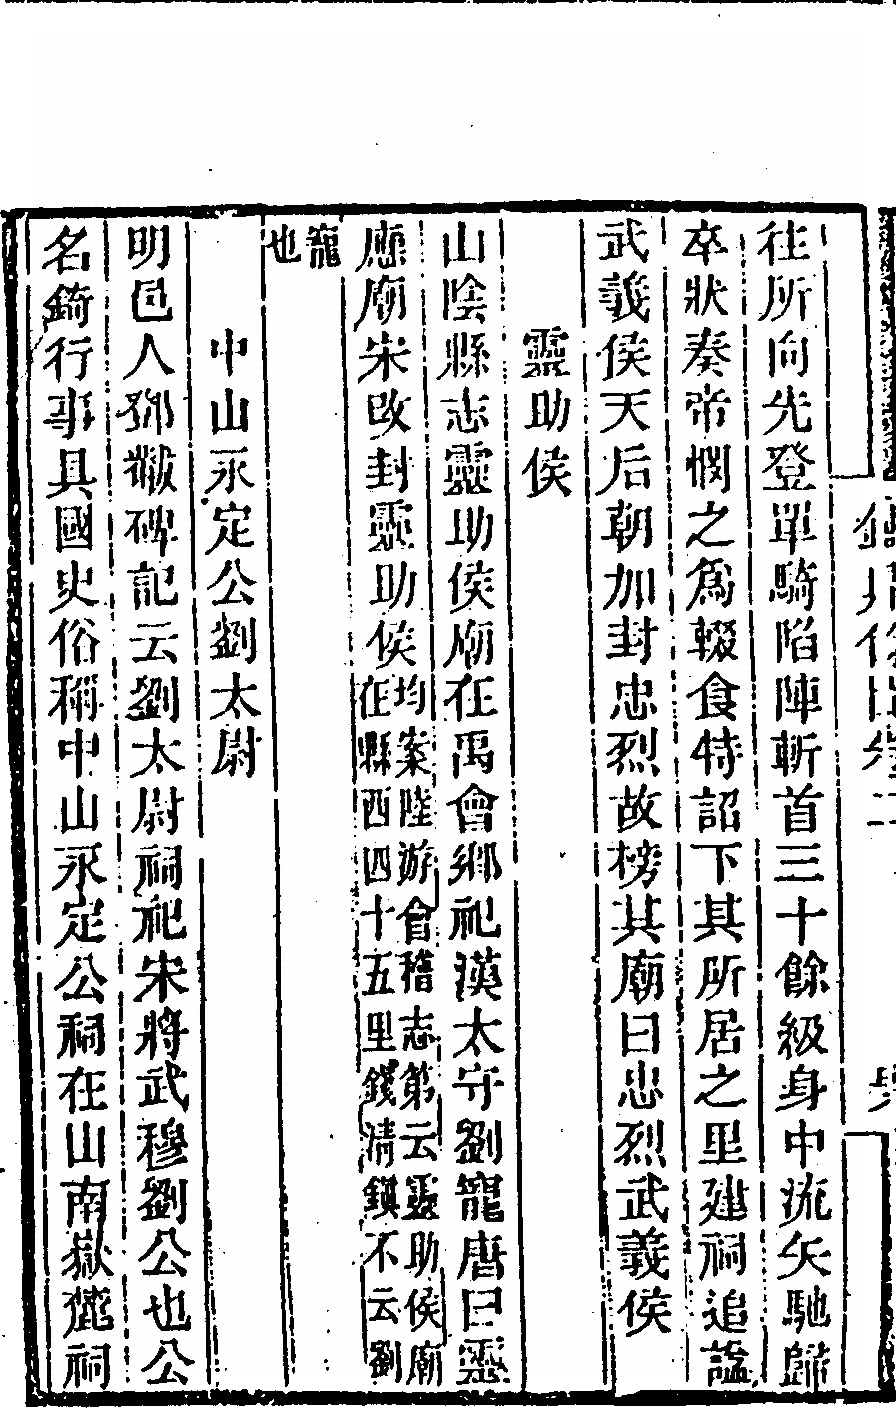 往所向先登單騎陷陣斬首三十餘級身中流矢馳歸
卒狀奏帝憫之為輟食特詔下其所居之里建祠追諡
武義侯天后朝加封忠烈故榜其廟曰忠烈武義侯
靈助侯
山陰縣志靈助侯廟在禹會鄉祀漢太守劉寵唐曰靈
應廟宋改封靈助侯均案陸游會稽志第云靈助侯廟
在縣西四十五里錢清鎮不云劉
寵
也
中山永定公劉太尉
明邑人鄧黻碑記云劉太尉祠祀宋將武穆劉公也公
名錡行事具國史俗稱中山永定公祠在山南嶽麓祠